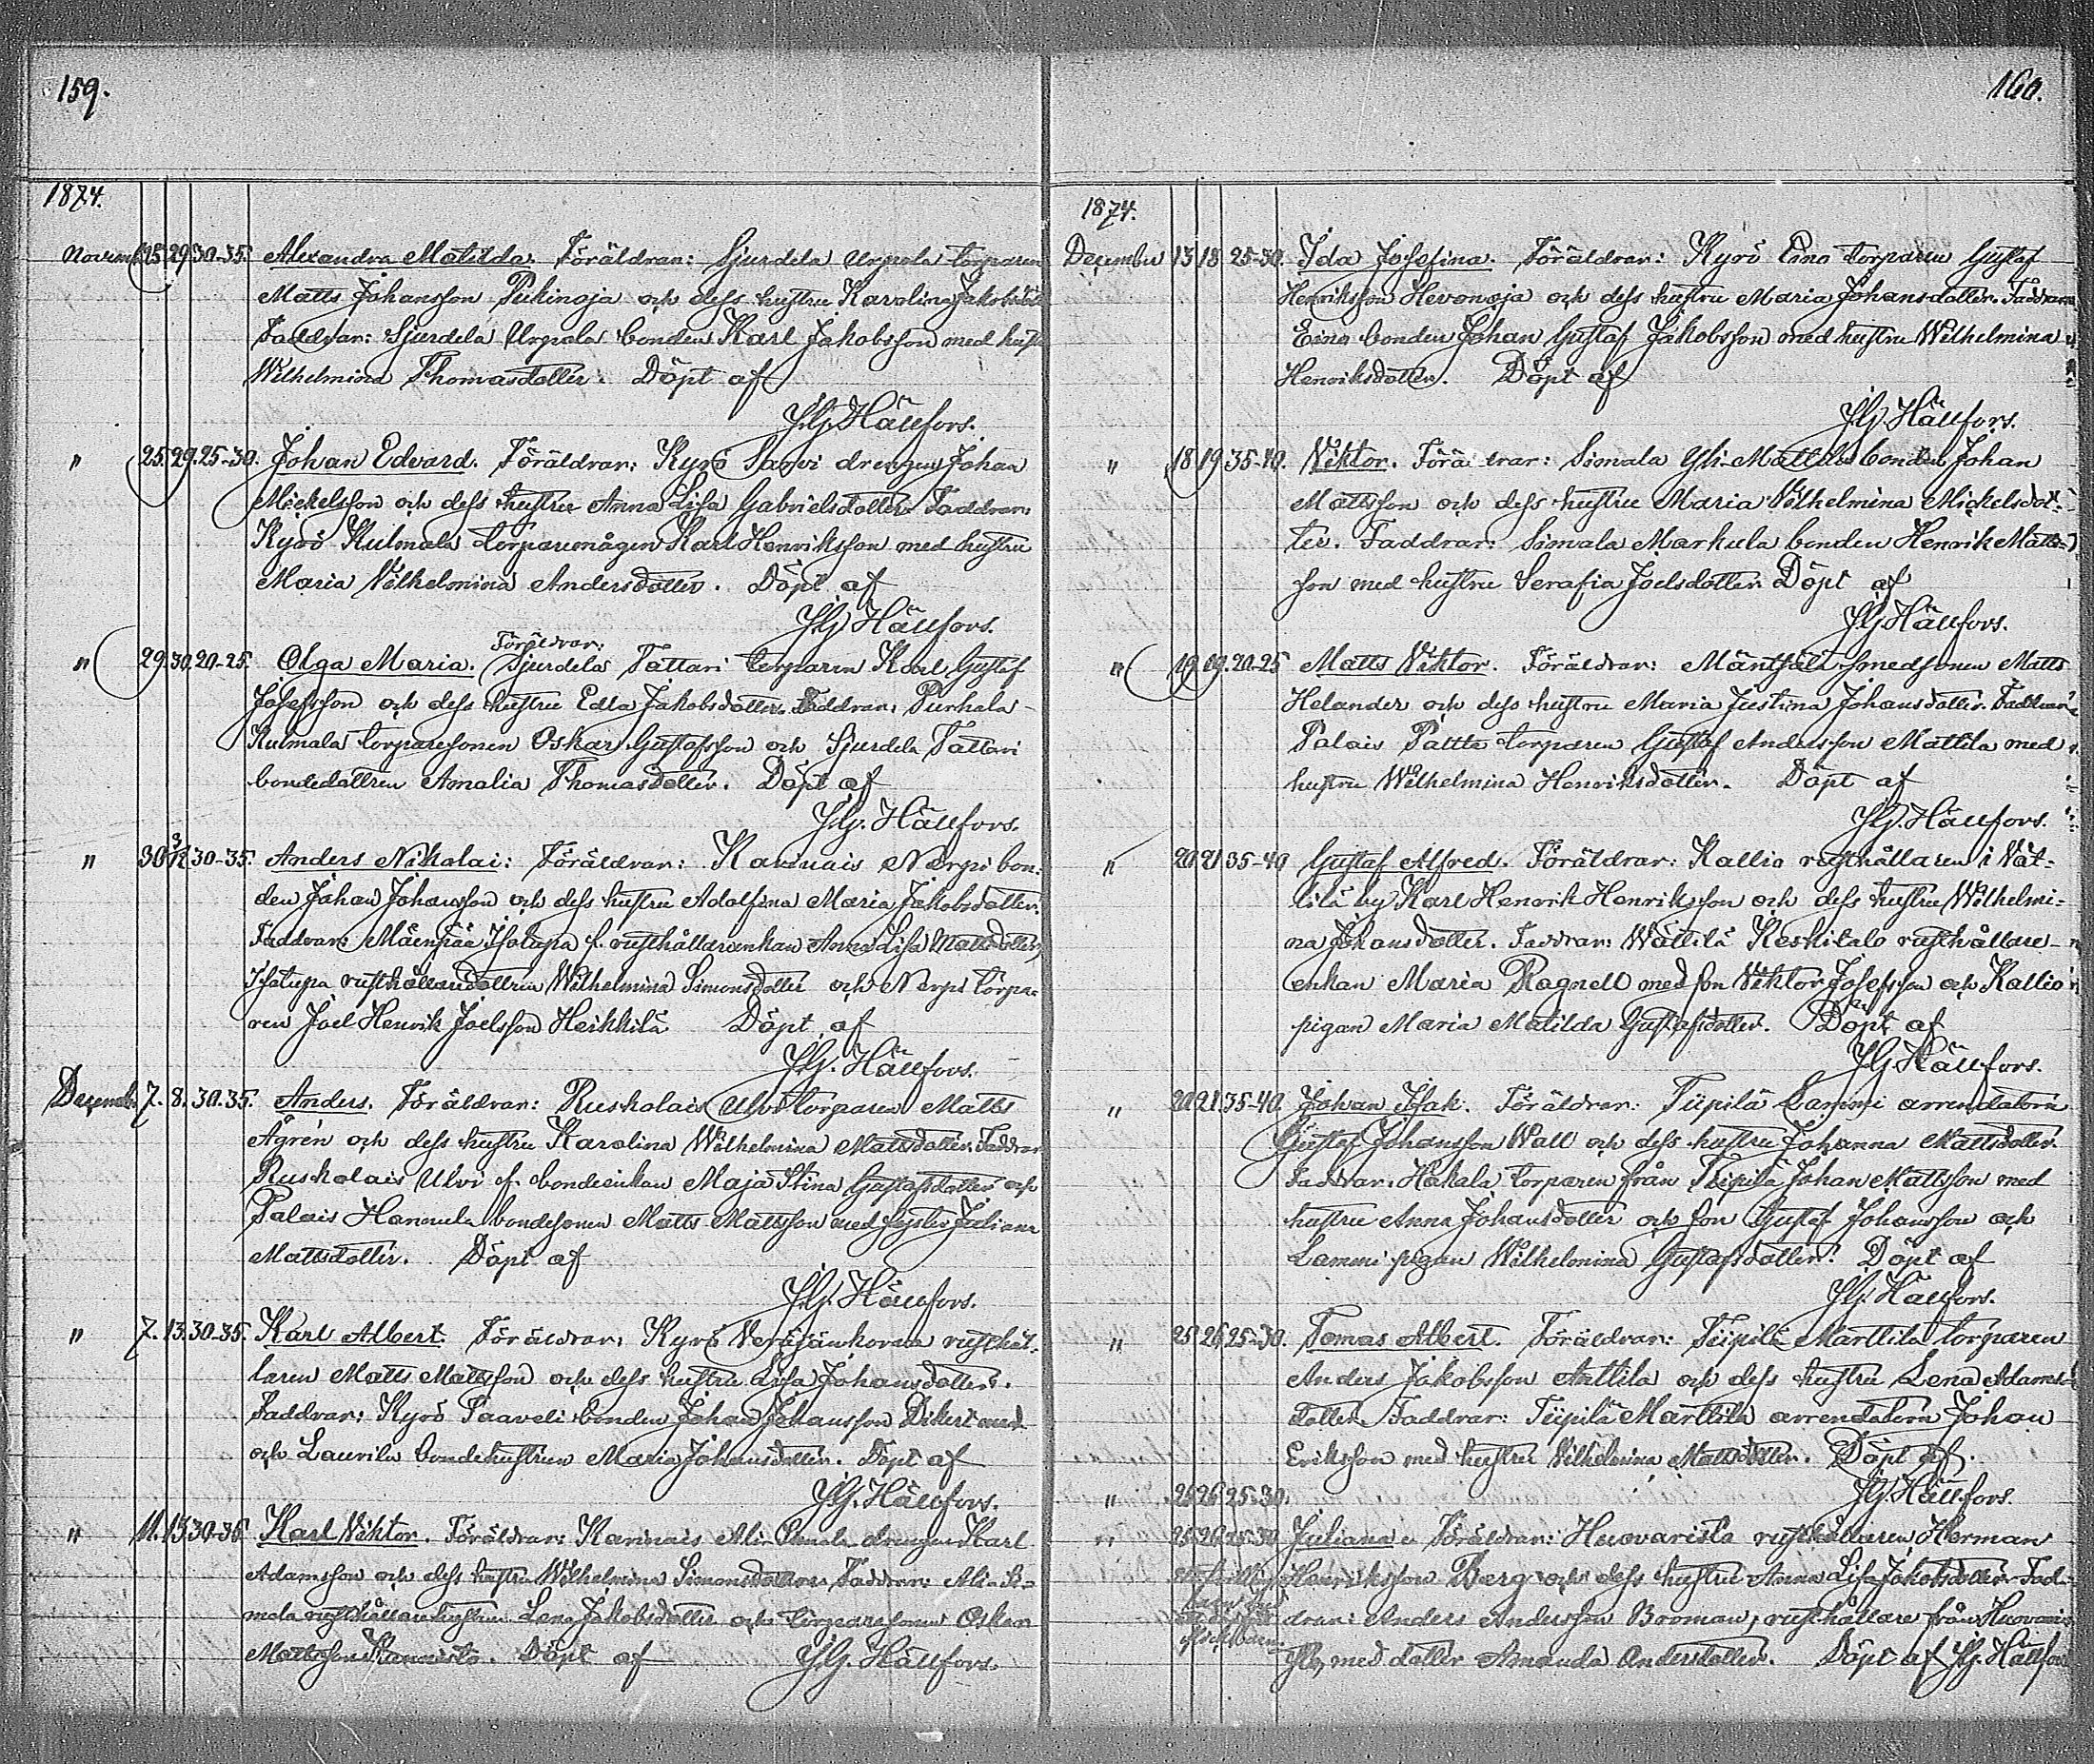 159.
1874.
Novemb. 15. 29. 30-35. Alexandra Matilda. Föräldrar: Sjurdela Urpola torparen
Matts Johansson Pukinoja och dess hustru Karolina Jakobsdotter
Faddrar: Sjurdela Urpola bonden Karl Jakobsson med hustr
Wilhelmina Thomasdotter. Döpt af
J.G. Hällfors.
" 25. 29. 25-30. Johan Edvard. Föräldrar: Kyrö Sarvi drengen Johan
Mickelsson och dess hustru Anna Lisa Gabrielsdotter. Faddrar:
Kyrö Kulmala torparemågen Karl Henriksson med hustru
Maria Vilhelmina Andersdotter. Döpt af
J.G. Hällfors.
" 29. 30. 20-25. Olga Maria. Föräldrar: Sjurdela Tattari torparen Karl Gustaf
Josefsson och dess hustru Edla Jakobsdotter. Faddrar: Purhala
Kulmala torparesonen Oskar Gustafsson och Sjurdela Tattari
bondedottren Amalia Thomasdotter. Döpt af
J.G. Hällfors.
" 30 3/12 30-35. Anders Nikolai: Föräldrar: Karinais Nerpi bon-
den Johan Johansson och dess hustru Adolfina Maria Jakobsdotter.
Faddrar: Mäenpää Isotupa f. rusthållarenkan Anna Lisa Mattsdotter,
Isotupa rusthållaredottren Wilhelmina Simonsdotter och Nerpi torpa-
ren Joel Henrik Joelsson Heikkilä Döpt af
J.G. Hällfors.
Decemb. 7. 8. 30-35. Anders. Föräldrar: Ruskolais Ulvi torparen Matts
Ågrén och dess hustru Karolina Wilhelmina Mattsdotter. Faddrar
Ruskolais Ulvi f. bondeenkan Maja Stina Gustafsdotter och
Palais Hannula bondesonen Matts Mattsson med syster Juliana
Mattsdotter. Döpt af
J.G. Hällfors.
" 7. 13. 30-35. Karl Albert. Föräldrar: Kyrö Veräjänkorva rusthål-
laren Matts Mattsson och dess hustru Lisa Johansdotter.
Faddrar: Kyrö Paaveli bonden Johan Johansson Dikert med
och Laurila bondehustrun Maria Johansdotter. Döpt af
J.G. Hällfors.
" 11. 13. 30-35 Karl Viktor. Föräldrar: Karinais Ali- drengen Karl
Adamsson och dess hustru Wilhelmina Simonsdotter. Faddrar: Ali-
mola rusthållarehustrun Lena Jakobsdotter och torparesonen Oskar
Mattsson Kannisto. Döpt af J.G. Hällfors.
160.
1874.
December 13 18 25-30. Ida Josefina. Föräldrar: Kyrö Eino torparen Gustaf
Henriksson Hevonoja och dess hustru Maria Johansdotter. Faddrar:
Eino bonden Johan Gustaf Jakobsson med hustru Wilhelmina
Henriksdotter. Döpt af
J.G. Hällfors.
" 18 19 35-40. Viktor. Föräldrar: Simala Yli-Mattila bonden Johan
Mattsson och dess hustru Maria Vilhelmina Mickelsdot-
ter. Faddrar: Simala Markula bonden Henrik Matts-
son med hustru Serafia Joelsdotter. Döpt af
J.G. Hällfors.
" 19 19. 20-25 Matts Viktor. Föräldrar: Mäntsälä smedsonen Matts
Helander och dess hustru Maria Justina Johansdotter. Faddrar:
Palais Pätts torparen Gustaf Andersson Mattila med
hustru Wilhelmina Henriksdotter. Döpt af
J.G. Hällfors.
" 20 21 35-40 Gustaf Alfred. Föräldrar: Kallio rusthållaren i Vät-
tilä by Karl Henrik Henriksson och dess hustru Wilhelmi-
na Johansdotter. Faddrar: Wättilä Keskitalo rusthållare-
enkan Maria Ragnell med son Viktor Josefsson och Kallio
pigan Maria Matilda Gustafsdotter. Döpt af
J.G. Hällfors.
" 20 21. 35-40. Johan Isak. Föräldrar: Tiipilä Lammi arrendatorn
Gustaf Johansson Wall och dess hustru Johanna Mattsdotter.
Faddrar: Hakala torparen från Tiipilä Johan Mattsson med
hustru Anna Johansdotter och son Gustaf Johansson och
Lammi pigan Wilhelmina Gustafsdotter. Döpt af
J.G. Hällfors.
" 25 26 25-30. Tomas Albert. Föräldrar: Tiipilä Marttila torparen
Anders Jakobsson Anttila och dess hustru Lena Adams-
dotter. Faddrar: Tiipilä Marttila arrendatorn Johan
Eriksson med hustru Vilhelmina Mattsdotter. Döpt af.
" 25 26 25-30. J.G. Hällfors.
" 25 26 25-30 Juliana Föräldrar: Huovarista rusthållaren Herman
Henriksson Berg och dess hustru Anna Lisa Jakobsdotter. Fad-
drar: Anders Andersson Booman, rusthållare från Huovaris
by, med dotter Amanda Andersdotter. Döpt af J.G. Hällfors